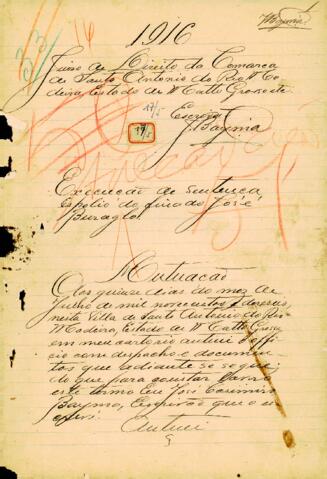 1916
Juizo de Direito da Comarca
de Santo Antonio do Rio M
deira, Estado de Matto Grosso
Escrivão
17/5
Bayma
17/5
Execução de sentença
Espolio do finado José
Autuação
Aos quinze dias do mez de
Julho de mil novecentos e dezeseis,
nesta Villa de Santo Antonio do Rio
Madeira, Estado de Matto Grosso
em meu cartorio autuei o offi
cio com despacho e documen
tos que adiante se segue;
do que para constar lavro
este termo. Eu José Casimiro
Bayma, Escrivão que o es
crevi.
Autuei